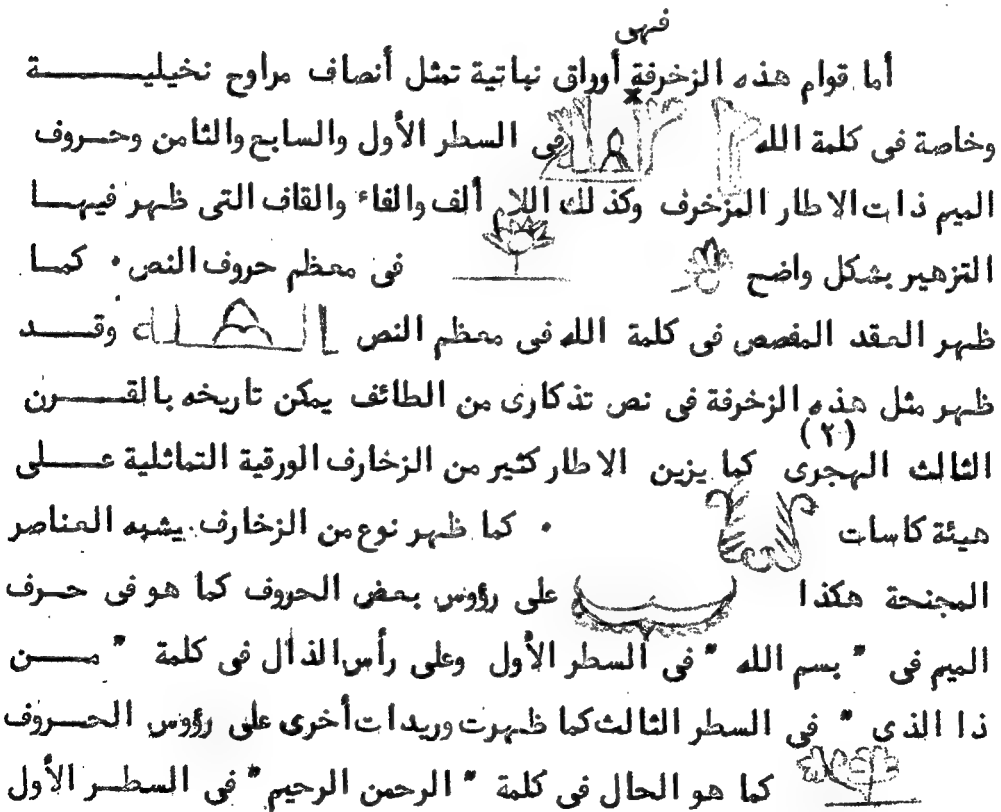 فهى
أما قوام هذه الزخرفة أوراق نباتية تمثل أنصاف مراوح نخيلية
وخاصة فى كلمة الله فى السطر الأول والسابع والثامن وحروف
الميم ذات الاطار المزخرف وكذلك اللام ألف والفاء والقاف التى ظهر فيها
التزهير بشكل واضح فى معظم حروف النص ٠ كما
ظهر العقد المفصص فى كلمة الله فى معظم النص وقد
ظهر مثل هذه الزخرفة فى نص تذكارى من الطائف يمكن تاريخه بالقرن
الثالث الهجرى (٢) كما يزين الاطار كثير من الزخارف الورقية التماثلية على
هيئة كاسات ٠ كما ظهر نوع من الزخارف يشبه العناصر
المجنحة هكذا على رؤوس بعض الحروف كما هو فى حرف
الميم فى " بسم الله " فى السطر الأول وعلى رأس الذال فى كلمة " من
ذا الذى " فى السطر الثالث كما ظهرت وريدات أخرى على رؤوس الحروف
كما هو الحال فى كلمة " الرحمن الرحيم " فى السطر الأول